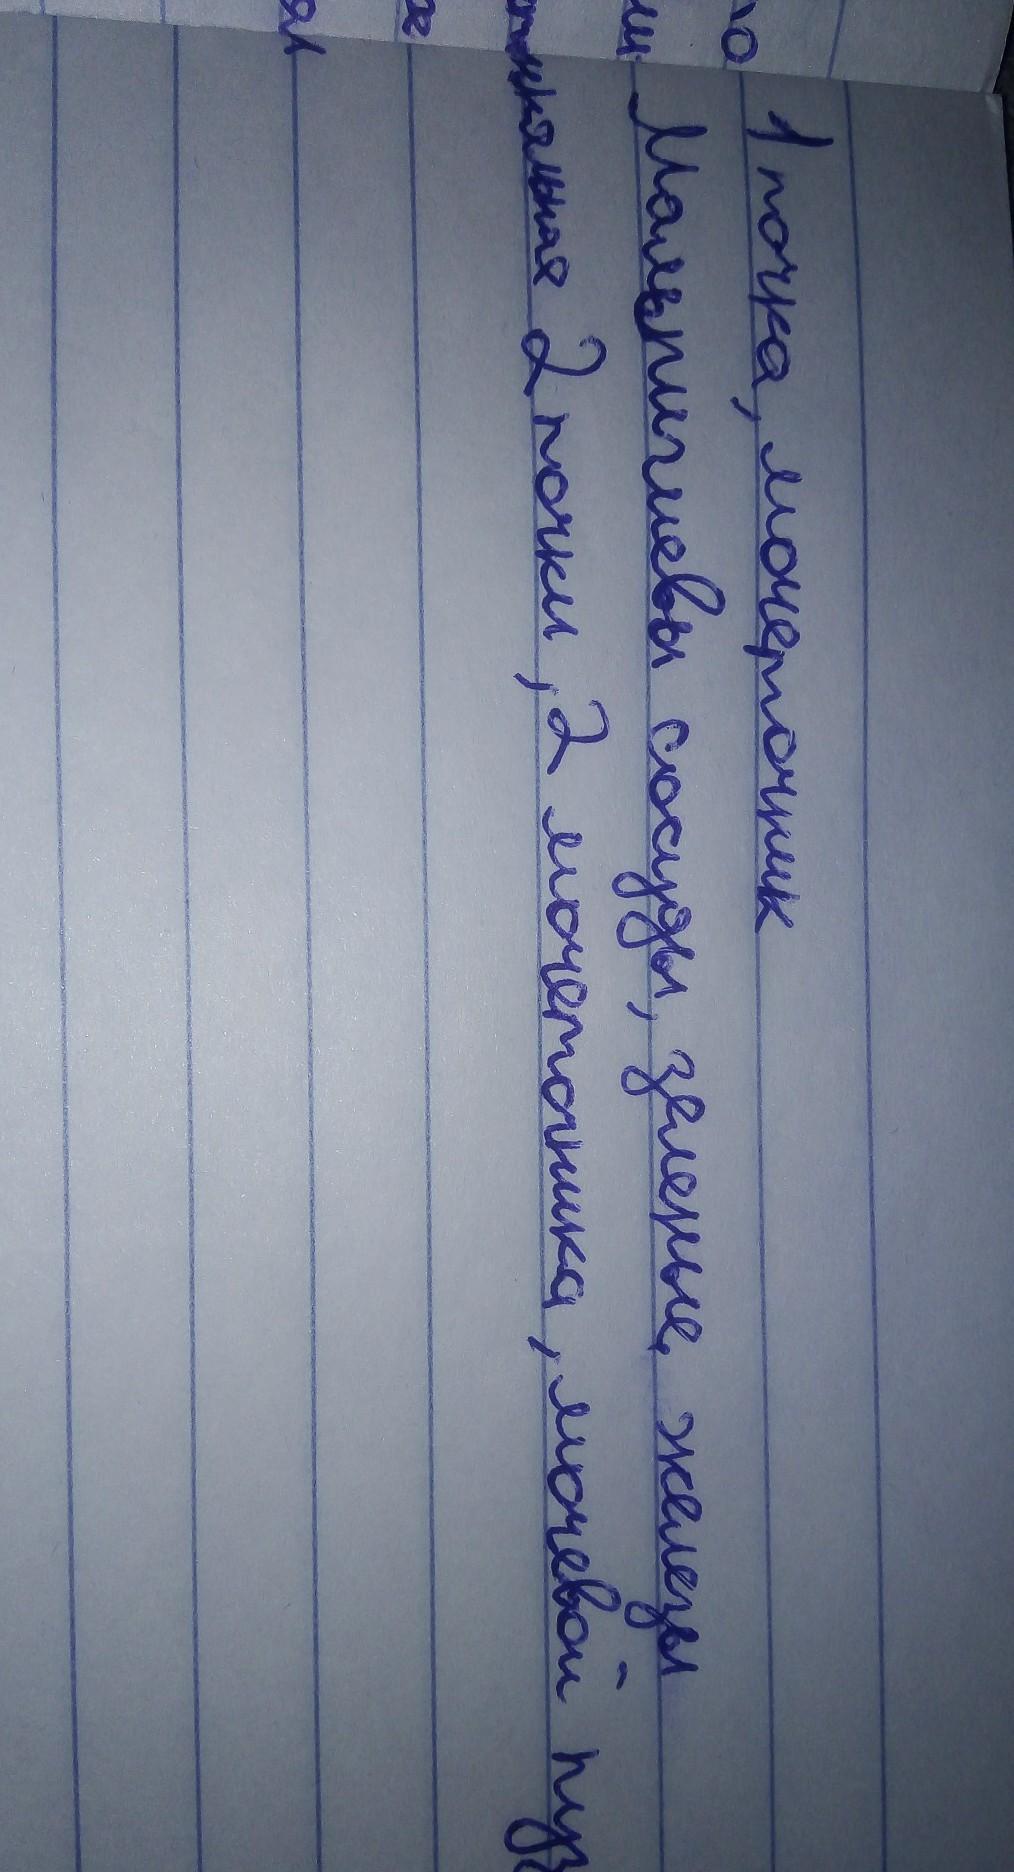 1 почка, мочеточник
Мальпигиевы сосуды, зеленые железы
2 почки, 2 мочеточника, мочевой пуз